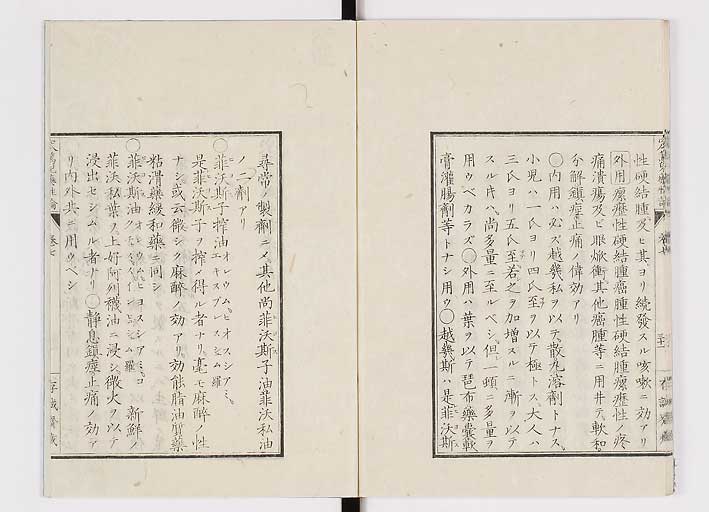 性硬結腫及ヒ其ヨリ続發スル咳嗽ニ効アリ
外用瘰癧性硬結腫癌腫性硬結腫瘰癧性ノ疼
痛潰瘍及ヒ眼焮衝其他癌腫等ニ用井テ軟和
分解鎮痙止痛ノ偉効アリ
○内用ハ必ズ越幾私ヲ以テ散丸溶劑トナス
小児ハ一氏ヨリ四氏至ヲ以テ極トス大人ハ
三氏ヨリ五氏至若之ヲ加増スルニ漸ヲ以テ
スル片ハ尚多量ニ至ルベシ但一頓ニ多量ヲ
用ウベカラズ○外用ハ葉ヲ以テ琶布藥嚢軟
膏灌腸劑等トナシ用ウ○越幾斯ハ是菲沃斯
尋常ノ製劑ニメ其他尚菲沃斯子油菲沃私油
ノ二劑アリ
○菲沃斯子搾油 オレウム ヒオスシアミ
エキスプレスシム 羅
是菲沃斯子ヲ搾メ得ル者ナリ毫モ麻酔ノ性
ナシ或云微シク麻酔ノ効アリ効能脂油質藥
粘滑藥緩和藥ニ同シ
○菲沃斯油 新鮮ノ
菲沃私葉ヲ上好阿列襪油ニ浸シ微火ヲ以テ
浸出セシムル者ナリ○静息鎮痙止痛ノ効ア
リ内外共ニ用ウベシ